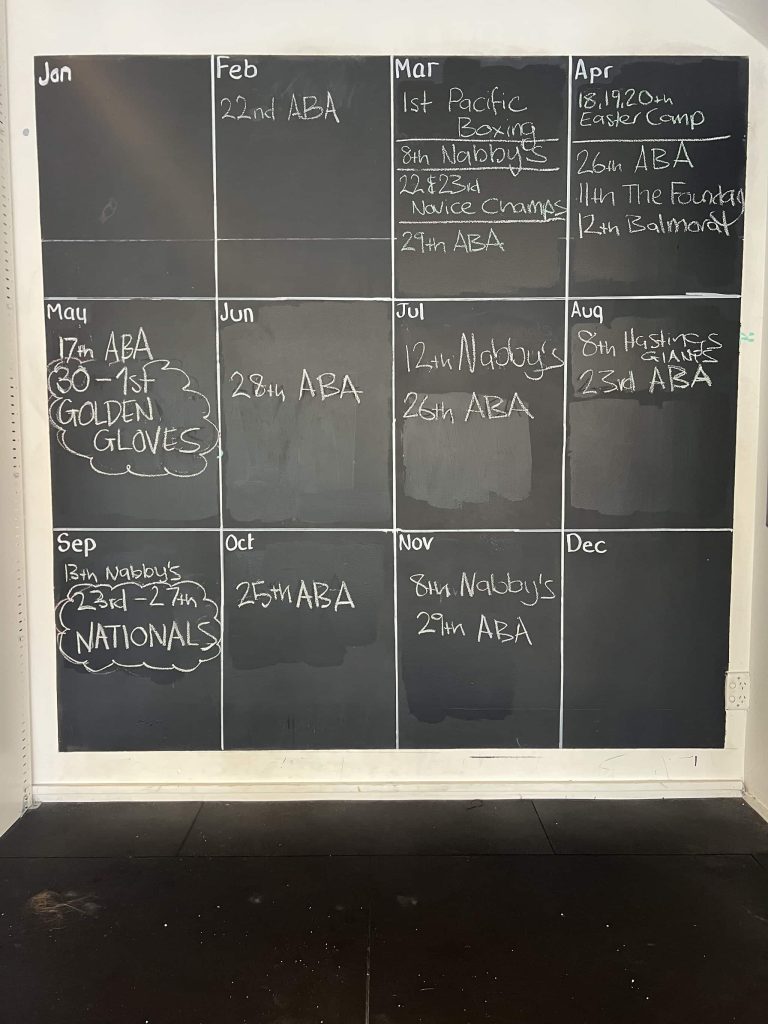 Jan
Feb
22nd ABA
Mar
1st Pacific
Boxing
8th Nabby's
22 & 23rd
Novice Champs
29th ABA
Apr
18,19,20th
Easter Camp
26th ABA
11th The Foundary
12th Balmoral
May
17th ABA
30-1st
GOLDEN
GLOVES
Jun
28th ABA
Jul
12th Nabby's
26th ABA
Aug
8th Hastings
GIANTS
23rd ABA
Sep
13th Nabby's
23rd-27th
NATIONALS
Oct
25th ABA
Nov
8th Nabby's
29th ABA
Dec